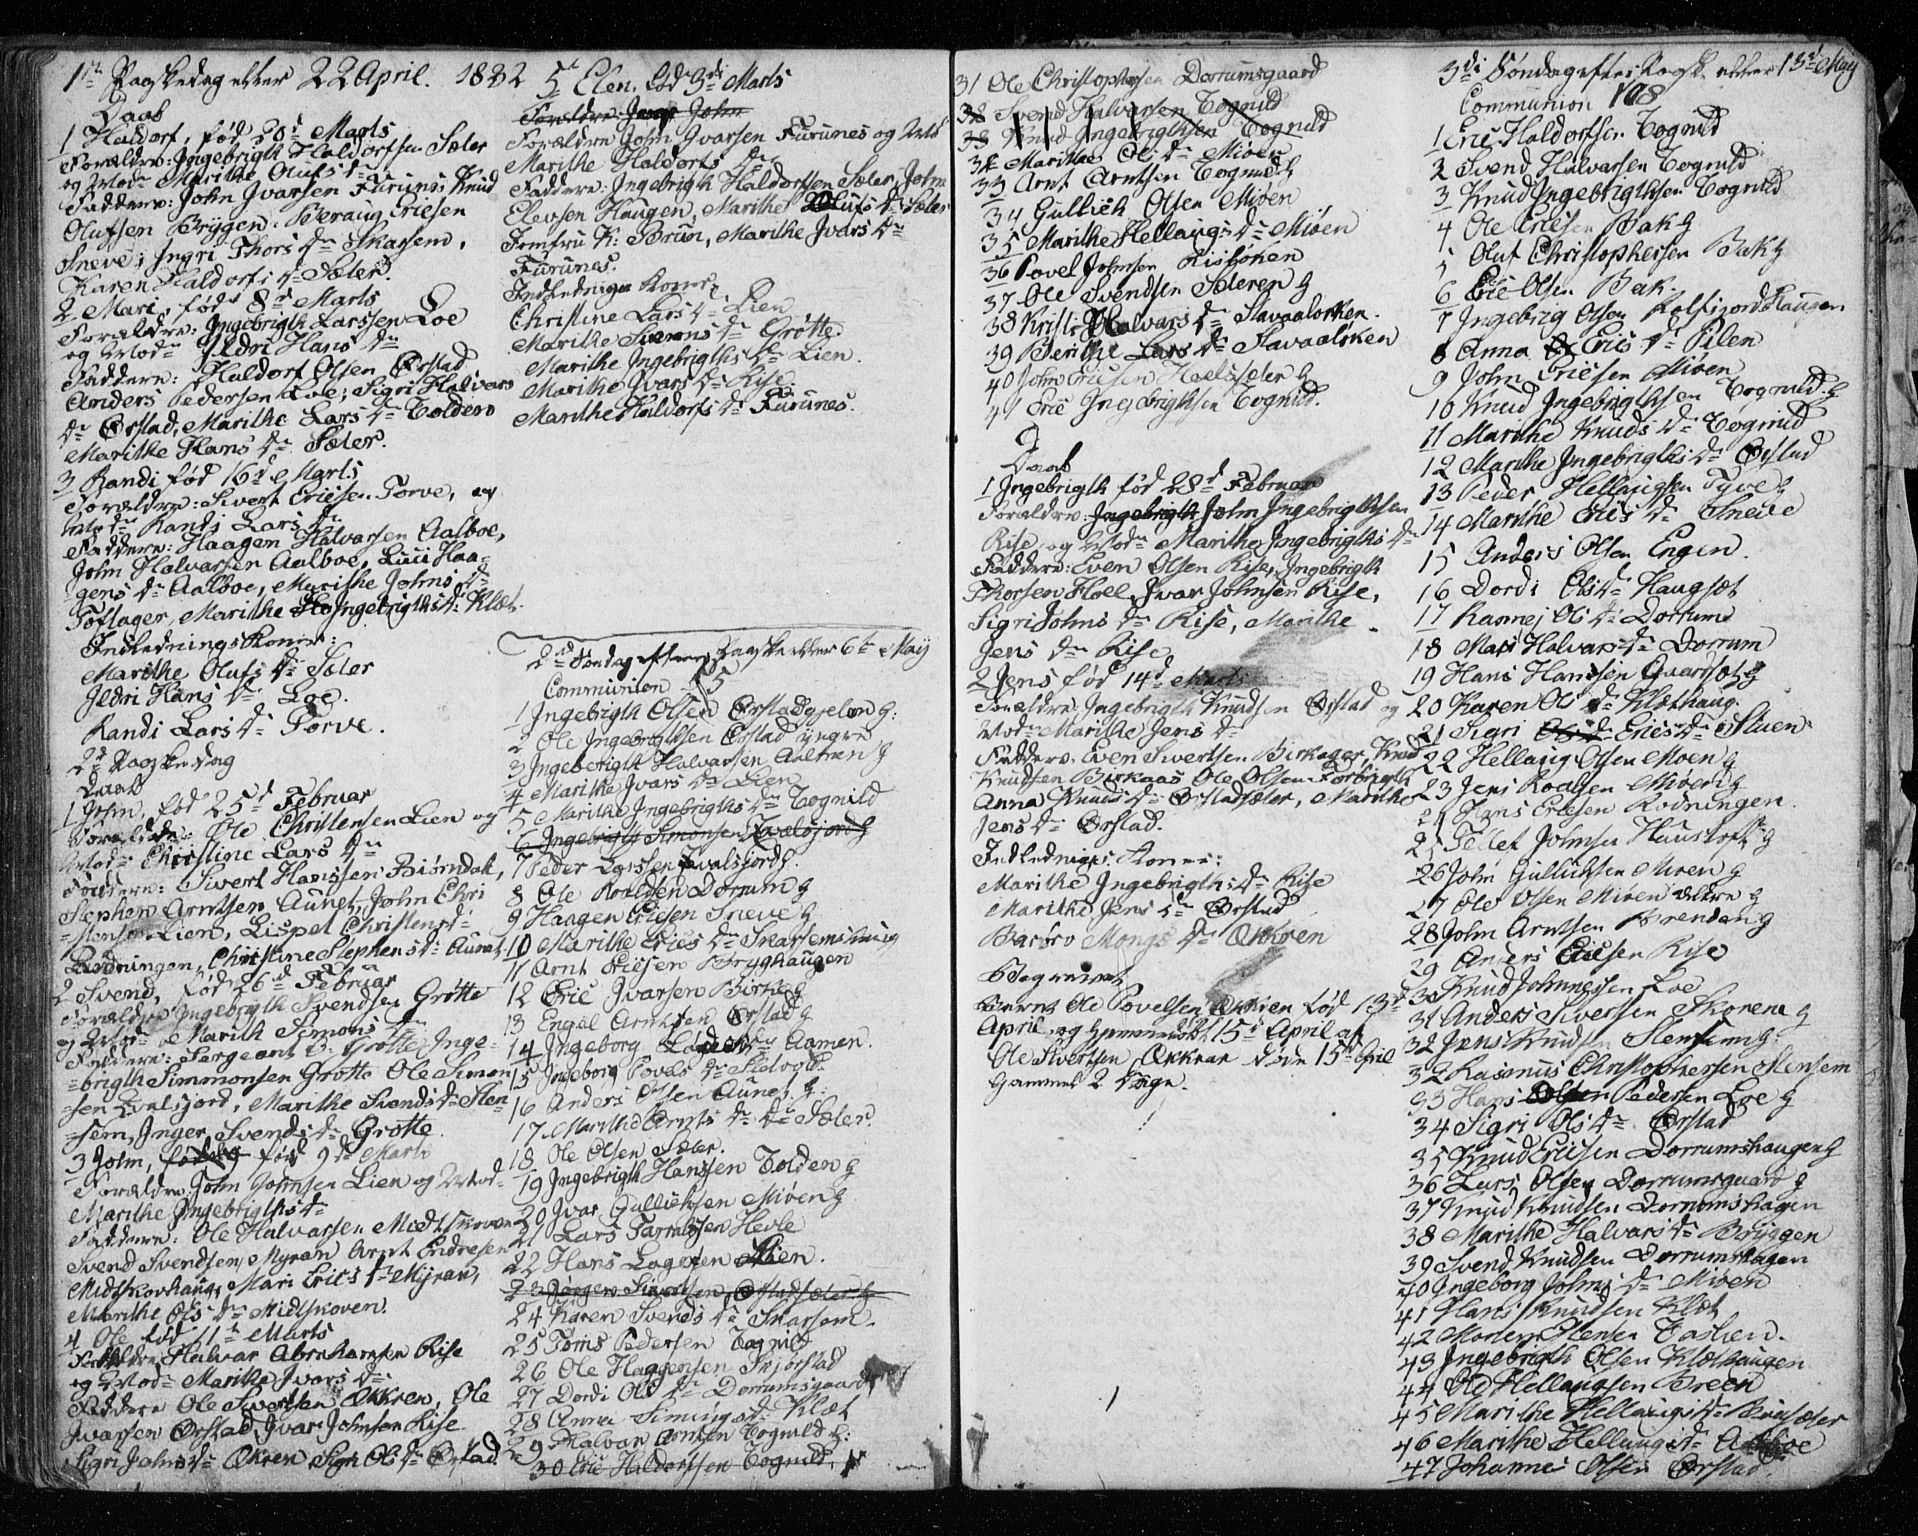 1ste Paaskedag eller 22 April. 1822
Daab
1 Haldorf, fød 20d Marts
Forældre: Ingebrigth Haldorfsen Sæter
og Mod: Marithe Olufs dr
Faddere: John Jvarsen Furunes Knud
Olufsen Bryggen. Beraug Ericsen
Sneve; Ingri Thors dr Skarsem,
Karen Haldorfs dr Sæter.
2 Mari, fød 8d Marts
Forældre: Ingebrigth Larssen Loe
og Mod: Jldri Hans dr
Faddere: Haldorf Olsen Ørstad
Anders Pedersen Loe; Sigri Halvars
dr Ørstad, Marithe Lars dr Tolden
Marithe Hans dr Sæter.
3 Randi fød 16d Marts
Forældre: Sivert Ericsen Torve, og
Mod: Randi Lars dr
Faddere: Haagen Halvarsen Aalboe,
John Halvarsen Aalboe, Haa-
gens dr Aalboe, Marithe Johns dr
Toftager, Marithe Ingebrigths dr Klæt.
Indledningskoner:
Marithe Olufs dr Sæter
Jldri Hans dr Loe.
Randi Lars dr Torve.
2d Paaskedag
Daab
1 John, fød 25d Februar
Forældre: Ole Christensen Lien og
Mod: Christine Lars dr
Faddere: Sivert Hanssen Biørndal,
Stephen Arntsen Aunet, John Chri
=stensen Lien, Lispet Christens dr
Christine Stephens dr Aunet
2 Svend, fød 26d Februar
Forældre Ingebrigth Svendsen Grøtte
og Mod: Marith Simons dr
Faddere: Sergeant O: Grøtte Inge=
=brigth Simmonsen Grøtte Ole Simon
=sen Qvalsjord, Marithe Svends dr Sten
=sem, Inger Svends dr Grøtte.
3 John, fød 9d Marts
Forældre John Johnsen Lien og Mod.
Marithe Ingebrigths dr
Faddere: Ole Halvarsen Midtskoven
Svend Svendsen, Myran Arnt Endresen
Midtskovhaug, Mari Erics dr Myran,
Marithe Ols dr Midtskoven.
4 Ole fød 11te Marts
Forældre Halvar Abrahamsen Rise
og Mod: Marithe Jvars dr
Faddere Ole Sivertsen Økkren, Ole
Jvarsen Ørstad, Jvar Johnsen Rise
Sigri Johns dr Økren Sigri Ols dr Ørstad.
5 Elen, fød 3di Marts
Forældre: John
Forældre John Jvarsen Furunes og Mod
Marithe Haldorfs dr
Faddere: Ingebrigth Haldorfsen Sæter, John
Elevsen Haugen, Marithe Olufs dr Sæter
Jomfru K: Brun, Marithe Jvars dr
Furunes.
Indledninges Koner
Christine Lars dr Lien
Marithe Simons dr Grøtte
Marithe Ingebrigths dr Lien.
Marithe Jvars dr Rise
Marithe Haldorfs dr Furunes.
2d Søndag efter Paaske eller 6te May
Communion
1 Ingebrigth Olsen Ørstadgjelen g:
2 Ole Ingebrigthsen Ørstad yngre
3 Ingebrigth Halvarsen Aaltran g
4 Marithe Jvars dr Lien
5 Marithe Ingebrigths dr Tognild
6 Ingebrigth Simonsen Qvalsjord g
7 Peder Larssen Qvalsjord g.
8 Ole Dorrum g
9 Haagen Ericsen Sneve g
10 Marithe Erics dr Skarsems haug
11 Arnt Ericsen Brygghaugen
12 Eric Jvarsen g
13 Engel Arntsen Ørstad g
14 Ingeborg dr Aamen.
15 Ingeborg Povels dr
16 Anders Olsen Aunet g:
17 Marithe Arnts dr Sæter.
18 Ole Olsen Sæter.
19 Ingebrigth Hanssen Tolden g
20 Jvar Gullichsen Miøen g
21 Lars Hevle
22 Hans Lien.
23 Jørgen Sivertsen Ørstadsæter g
24 Karen Svends dr Skarsem.
25 Pedersen Tognild
26 Ole Haagensen
27 Dordi Ols dr Dorrumsgaard
28 Anne dr Klæt
29 Halvar Arntsen Tognild g:
30 Eric Haldorfsen Tognild.
31 Ole Christophersen Dorrumsgaard
32 Svend Halvarsen Tognild
33 Knud Ingebrigthsen Tognild
32 Marithe Ols dr Miøen
33 Arnt Arntsen Tognild g
34 Gullich Olsen Miøen
35 Marithe Hellaugs dr Miøen
36 Povel Johnsen
37 Ole Svendsen Sæteren g
38 Kristi Halvars dr Slavaaløkken.
39 Berithe Lars dr Slavaaløken
40 John Ericsen g
41 Eric Ingebrigthsen Tognild.
Daab
1 Ingebrigth fød 28d Februar
Forældre: Ingebrigth John Ingebrigthsen
Rise og Mod: Marithe Ingebrigths dr
Faddere: Even Olsen Rise, Ingebrigth
Thorsen Hoel, Jvar Johnsen Rise,
Sigri Johns dr Rise, Marithe
Jens dr Rise
2 Jens fød 14d Marts
Forældre: Ingebrigth Knudsen Ørstad og
Mod: Marithe Jens dr
Faddere. Even Sivertsen Birkager, Knud
Knudsen Birkaas Ole Olsen
Anna Knuds dr Ørstadsæter, Marithe
Jens dr Ørstad.
Indlednings Koner:
Marithe Ingebrigths dr Rise
Marithe Jens dr Ørstad
Barbro Mongs dr Økkren
Begravet
Ole Povelsen Økkren fød 13d
April, og Hjemmedøbt 15d April af
Ole Sivertsen, Økkran døde 15d April
Gammel 2 Dage.
3di Søndag efter Paask. eller 13d May
Communion 108
1 Eric Haldorfsen Tognild
2 Svend Halvarsen Tognild
3 Knud Ingebrigthsen Tognild
4 Ole Ericsen Bak g
5 Oluf Christophersen Bak g
6 Eric Olsen Bak.
7 Ingebrig Olsen haugen
8 Anna Erics dr Pilen
9 John Ericsen Miøen
10 Knud Ingebrigthsen Tognild. g
11 Marithe Knuds dr Tognild
12 Marithe Ingebrigths dr Ørstad
13 Peder Hellaugsen Tyve g
14 Marithe Erics dr Sneve
15 Anders Olsen Engen.
16 Dordi Ols dr Haugset
17 Rannej Ols dr Dorrum
18 Mari Halvars dr Dorrum
19 Hans Hanssen g
20 Karen Ols dr Kletthaug.
21 Sigri Erics dr Stuen
22 Hellaug Olsen Moen g
23 Jens Roalsen Miøen g
24 Hans Ericsen Rodningen.
25 Tellef Johnsen g
26 John Gullichsen Miøen g
27 Ole Olsen Miøen ældre g
28 John Arntsen Brenden g
29 Anders Ericsen Rise
30 Knud Johannessen Loe
31 Anders Sivertsen Skorem g
32 Jens Knudsen Stensem g:
32 Rasmus Christophersen Stensem
33 Hans Olsen Pedersen Loe g
34 Sigri Ols dr Ørstad
35 Knud Ericsen Dorrumshaugen g
36 Lars Olsen Dorrumsgaard g
37 Knud Knudsen Dorrumshagen
38 Marithe Halvars dr Bryggen
39 Svend Knudsen Dorrumshagen
40 Ingeborg Johns dr Miøen
41 Hans Knudsen Klæt
42 Morten
43 Ingebrigth Olsen Klæthaugen
44 Ole Hellaugsen Breen
45 Marithe Hellaugs dr
46 Marithe Hellaugs dr Aalboe
47 Johannes Olsen Ørstad.